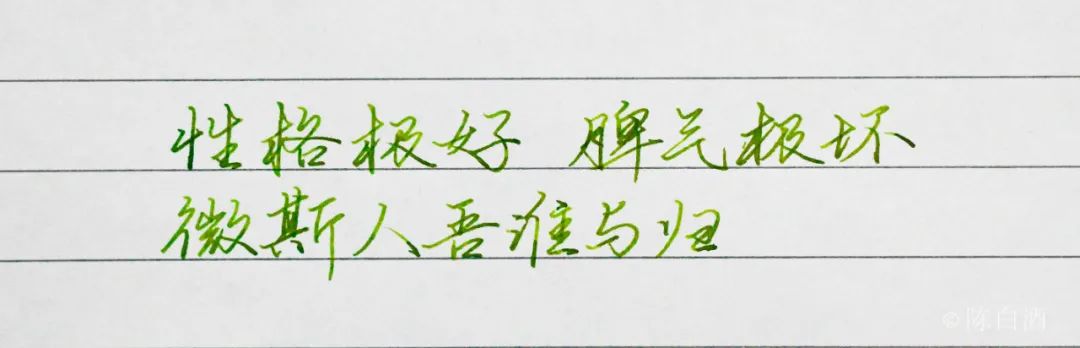 性格极好 脾气极坏
微斯人吾谁与归
©陈白酒